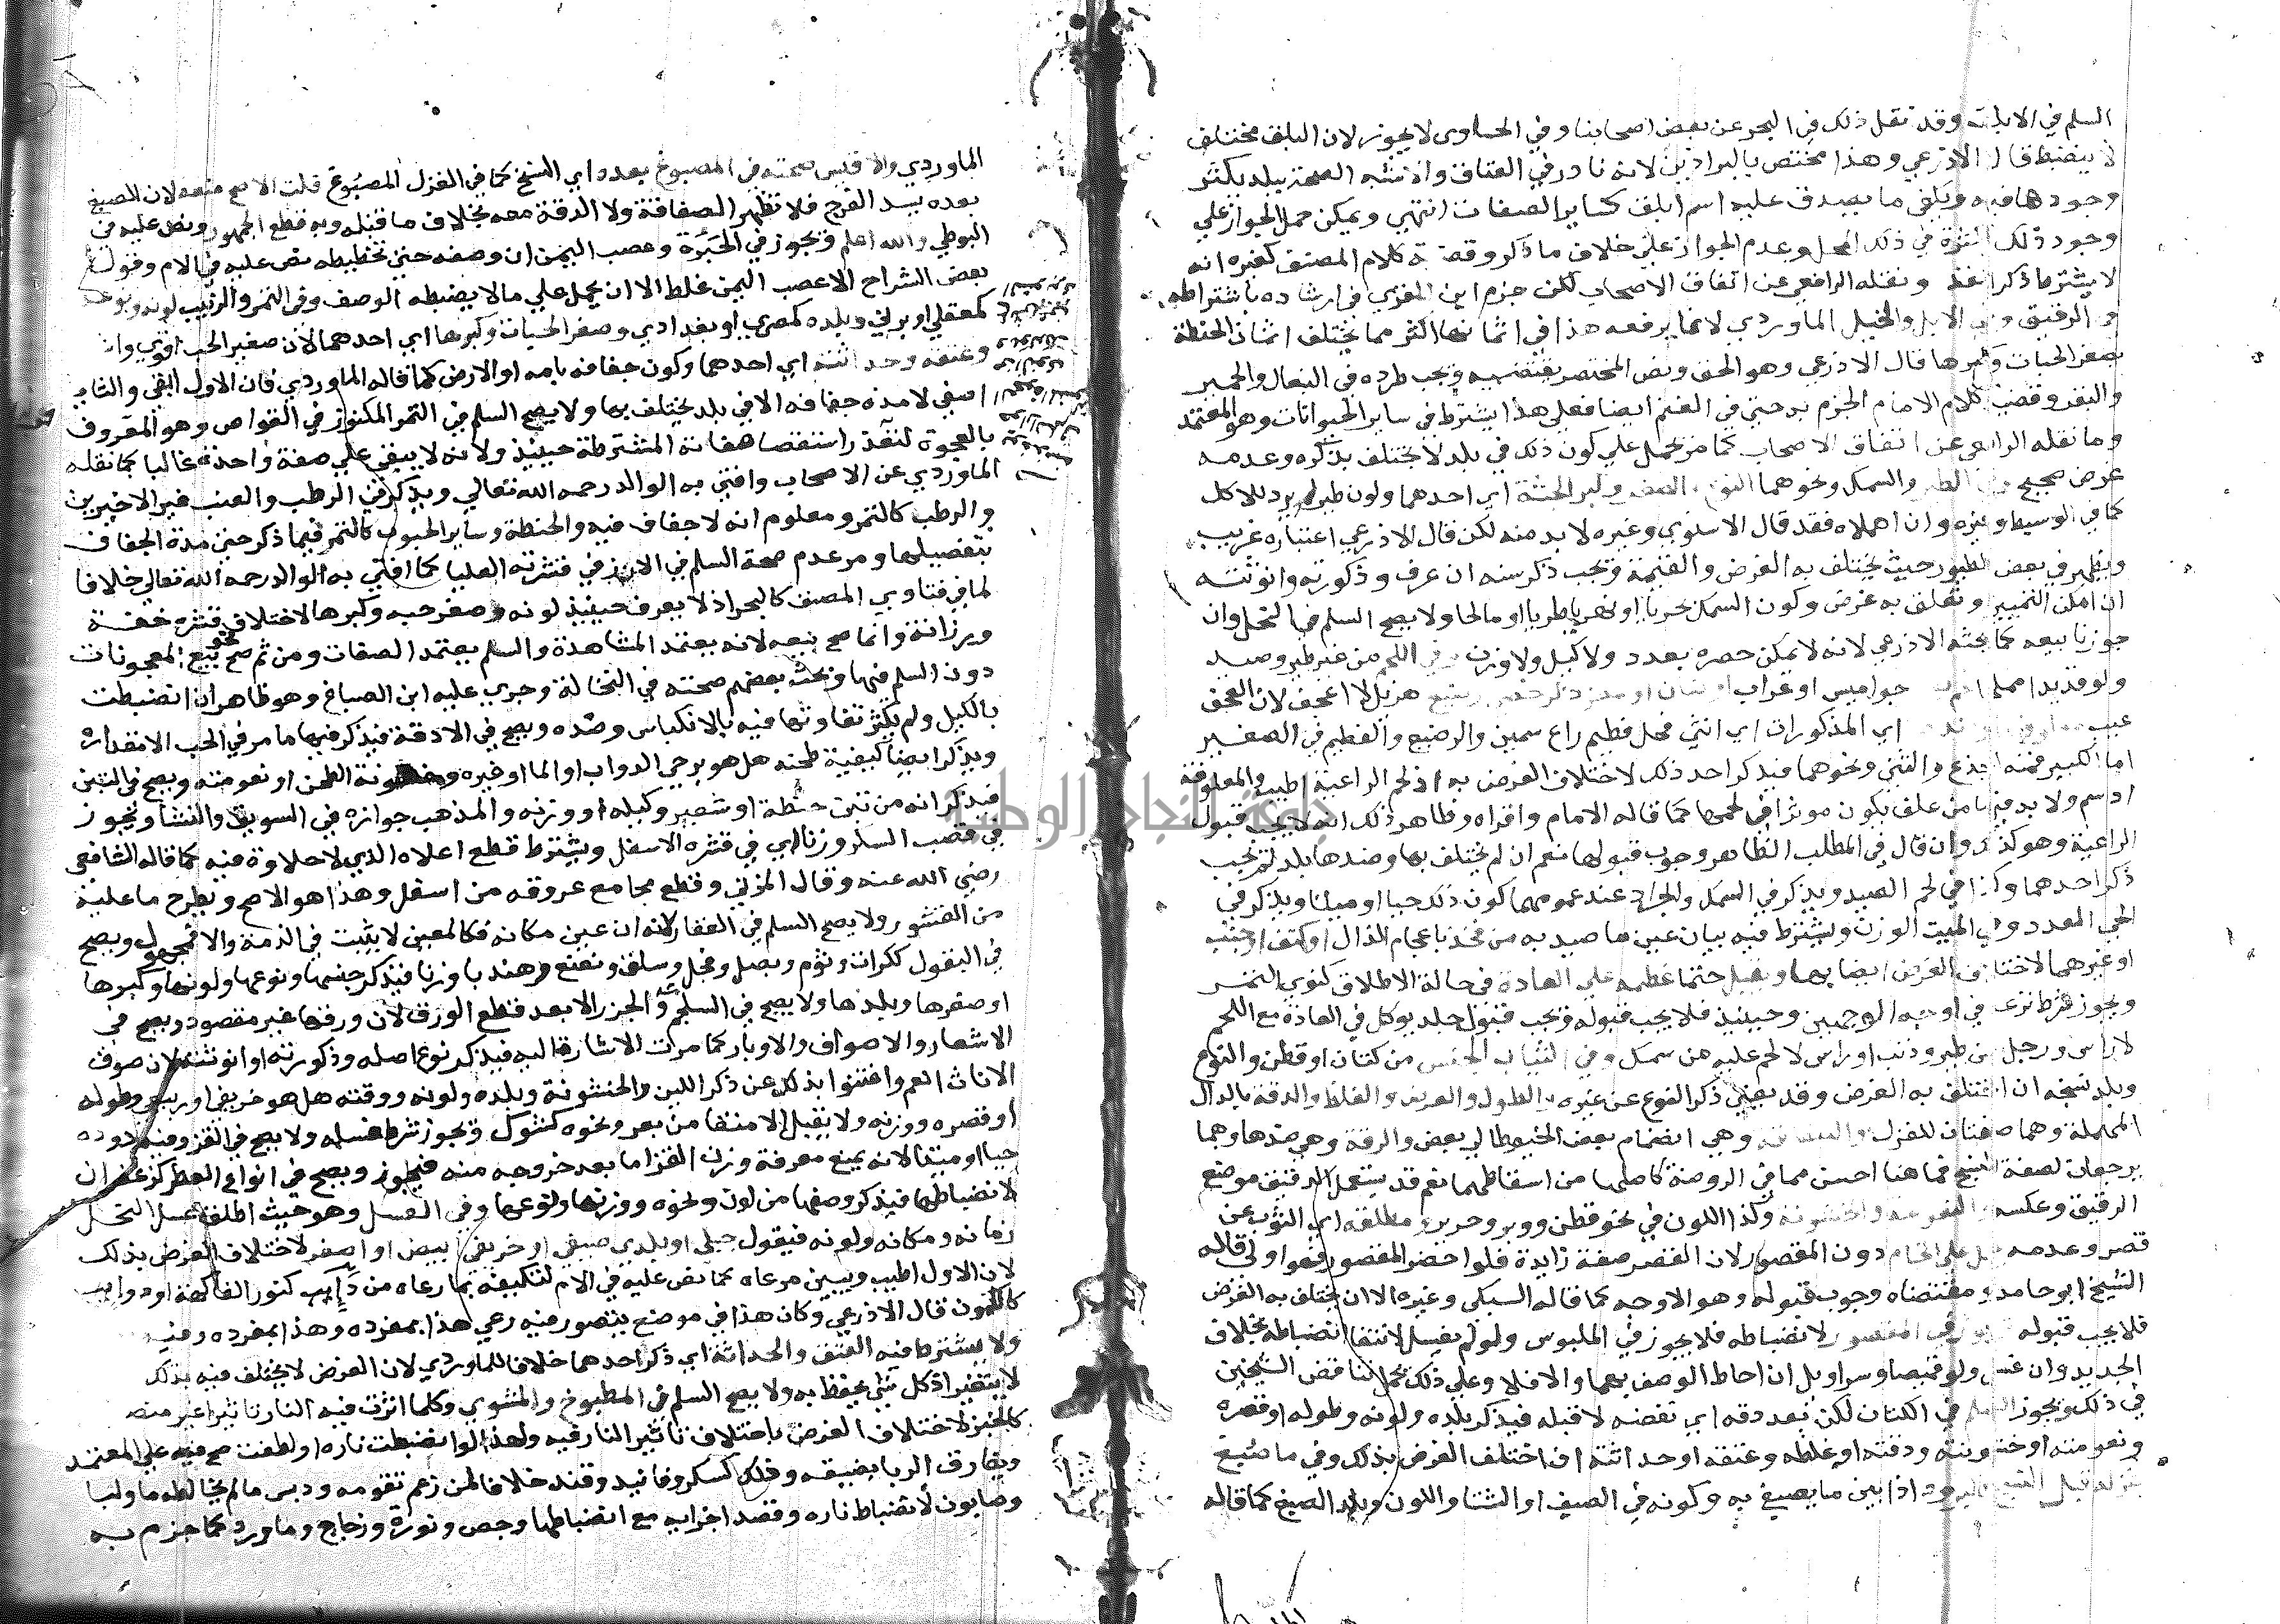 السلم في الابلق وقد نقل ذلك في البحر عن بعض اصحابنا وفي الحاوى لا يجوز لان البلق مختلف
لا ينضبط قال الاذرعي وهذا مختص بالبراذين لانه نادر في العتاق والاشبه الصحة ببلد يكثر
وجودها فيه ويكفى ما يصدق عليه اسم ابلق كساير الصفات انتهى ويمكن حمل الجواز على
وجود ذلك بكثرة في ذلك المحل وعدم الجواز على خلاف ما ذكر وقضية كلام المصنف كغيره انه
لا يشترط ذكر القد ونقله الرافعي عن اتفاق الاصحاب لكن جزم ابن المقري في ارشاده باشتراطه
في الرقيق وفي الابل والخيل الماوردي لانما يرفعه هذا في اثمانها اكثر مما يختلف اثمان الحنطة
بصغر الحبات وكبرها قال الاذرعي وهو الحق ونص المختصر يقتضيه ويجب طرده في البغال والحمير
والبقر وقضية كلام الامام الجزم به حتى في الغنم ايضا فعلى هذا يشترط في ساير الحيوانات وهو المعتمد
وما نقله الرافعي عن اتفاق الاصحاب كما مر يحمل على كون ذلك في بلد لا يختلف بذكره وعدمه
غرض صحيح وفي الطير والسمك ونحوهما النوع والصغر وكبر الجثة اي احدهما ولون طير لم يرد للاكل
كما في الوسيط وغيره وان اهملاه فقد قال الاسنوي وغيره لا بد منه لكن قال الاذرعي اعتباره غريب
ويظهر في بعض الطيور حيث يختلف به الغرض والقيمة ويجب ذكر سنه ان عرف وذكورته وانوثته
ان امكن التمييز وتعلق به غرض وكون السمك بحريا او نهريا طريا او مالحا ولا يصح السلم في النحل وان
جوزنا بيعه كما بحثه الاذرعي لانه لا يمكن حصره بعدد ولا كيل ولا وزن وفي اللحم من غير طير وصيد
ولو قديدا مملحا لحم بقر جواميس او عراب او ضان او معز ذكر خصي رضيع هزيل لا اعجف لان العجف
عيب معلوف او ضدها اي المذكورات اي انثى فحل فطيم راع سمين والرضيع والفطيم في الصغير
اما الكبير فمنه الجذع والثني ونحوهما فيذكر احد ذلك لاختلاف الغرض به اذ لحم الراعية اطيب والمعلوفة
ادسم ولا بد فيها من علف يكون موثرا في لحمها كما قاله الامام واقراه وظاهر ذلك انه لا يجب قبول
الراعية وهو كذلك وان قال في المطلب الظاهر وجوب قبولها نعم ان لم يختلف بها وضدها بلد لم يجب
ذكر احدهما وكذا في لحم الصيد ويذكر في السمك والجراد عند عمومهما كون ذلك حيا او ميتا ويذكر في
الحي العدد وفي الميت الوزن ويشترط فيه بيان عين ما صيد به من فخذ باعجام الذال او كتف او جنب
او غيرهما لاختلاف الغرض ايضا بها ويقبل حتما عظمه على العادة في حالة الاطلاق كنوى التمر
ويجوز شرط نزعه في اوجه الوجهين وحينئذ فلا يجب قبوله ويجب قبول جلد يوكل في العادة مع اللحم
لا راس ورجل من طير وذنب او راس لا لحم عليه من سمك وفي الثياب الجنس من كتان او قطن والنوع
وبلد نسجه ان اختلف به الغرض وقد يغني ذكر النوع عن غيره والطول والعرض والغلظ والدقة بالدال
المهملة وهما صفتان للغزل والصفاقة وهي انضمام بعض الخيوط الى بعض والرقة وهي ضدها وهما
يرجعان لصفة النسج فما هنا احسن مما في الروضة كاصلها من اسقاطهما نعم قد يستعمل الدقيق موضع
الرقيق وعكسه والنعومة والخشونة وكذا اللون في نحو قطن ووبر وحرير ومطلقه اي الثوب عن
قصر وعدمه يحمل على الخام دون المقصور لان القصر صفة زايدة فلو احضر المقصور فهو اولى قاله
الشيخ ابو حامد ومقتضاه وجوب قبوله وهو الاوجه كما قاله السبكي وغيره الا ان يختلف به الغرض
فلا يجب قبوله ويجوز في المقصور لانضباطه فلا يجوز في الملبوس ولو لم يغسل لانتفا انضباطه بخلاف
الجديد وان غسل ولو قميصا وسراويل ان احاط الوصف بهما والا فلا وعلى ذلك يحمل تناقض الشيخين
في ذلك ويجوز السلم في الكتان لكن بعد دقه اي نفضه لا قبله فيذكر بلده ولونه وطوله او قصره
ونعومته او خشونته ودقته او غلظه وعتقه او حداثته ان اختلف الغرض بذلك وفي ما صبغ
غزله قبل النسج كالبرود اذا بين ما يصبغ به وكونه في الصيف او الشتا واللون وبلد الصبغ كما قاله
الماوردي والاقيس صحته في المصبوغ بعده اي النسج كما في الغزل المصبوغ قلت الاصح منعه لان الصبغ
بعده يسد الفرج فلا تظهر الصفاقة ولا الدقة معه بخلاف ما قبله وبه قطع الجمهور ونص عليه في
البويطي والله اعلم ويجوز في الحبرة وعصب اليمن ان وصفه حتى تخطيطه نص عليه في الام وقول
بعض الشراح الا عصب اليمن غلط الا ان يحمل على ما لا يضبطه الوصف وفي التمر والزبيب لونه ونوعه
كمعقلي او برني وبلده كمصري او بغدادي وصغر الحبات وكبرها اي احدهما لان صغير الحب اقوى
وعتقه وحداثته اي احدهما وكون جفافه بامه او الارض كما قاله الماوردي فان الاول ابقى والثاني
اصفى لا مدة جفافه الا في بلد يختلف بها ولا يصح السلم في التمر المكنوز في القواصر وهو المعروف
بالعجوة لتعذر استقصا صفاته المشترطة حينئذ ولانه لا يبقى على صفة واحدة غالبا كما نقله
الماوردي عن الاصحاب وافتى به الوالد رحمه الله تعالى ويذكر في الرطب والعنب غير الاخيرين
والرطب كالتمر ومعلوم انه لا جفاف فيه والحنطة وساير الحبوب كالتمر فيما ذكر حتى مدة الجفاف
بتفصيلها ومر عدم صحة السلم في الارز في قشرته العليا كما افتى به الوالد رحمه الله تعالى خلافا
لما في فتاوي المصنف كالبحر اذ لا يعرف حينئذ لونه وصغر حبه وكبرها لاختلاف قشره خفة
ورزانة وانما صح بيعه لانه يعتمد المشاهدة والسلم يعتمد الصفات ومن ثم صح نحو بيع المعجونات
دون السلم فيها وبحث بعضهم صحته في النخالة وجرى عليه ابن الصباغ وهو ظاهر ان انضبطت
بالكيل ولم يكثر تفاوتها فيه بالانكباس وضده ويصح في الادقة فيذكر فيها ما مر في الحب الا مقداره
ويذكر ايضا كيفية طحنه هل هو برحى الدواب او الما او غيره وخشونة الطحن او نعومته ويصح في التبن
فيذكر انه من تبن حنطة او شعير وكيله او وزنه والمذهب جوازه في السويق والنشا ويجوز
في قصب السكر وزنا اي في قشره الاسفل ويشترط قطع اعلاه الذي لا حلاوة فيه كما قاله الشافعي
رضي الله عنه وقال المزني وقطع مجامع عروقه من اسفل وهذا هو الاصح ويطرح ما عليه
من القشور ولا يصح السلم في العقار لانه ان عين مكانه فكالمعين لا يثبت في الذمة والا فمجهول ويصح
في البقول ككراث وثوم وبصل وفجل وسلق ونعنع وهندبا وزنا فيذكر جنسها ونوعها ولونها وكبرها
او صغرها وبلدها ولا يصح في السلجم والجزر الا بعد قطع الورق لان ورقها غير مقصود ويصح في
الاشعار والاصواف والاوبار كما مرت الاشارة اليه فيذكر نوع اصله وذكورته او انوثته لان صوف
الاناث انعم واغتنوا بذلك عن ذكر اللين والخشونة وبلده ولونه ووقته هل هو خريفي او ربيعي وطوله
او قصره ووزنه ولا يقبل الا منقا من بعر ونحوه كشوك ويجوز شرط غسله ولا يصح في القز وفيه دوده
حيا او ميتا لانه يمنع معرفة وزن القز اما بعد خروجه منه فيجوز ويصح في انواع العطر كزعفران
لانضباطها فيذكر وصفها من لون ونحوه ووزنها ونوعها وفي العسل وهو حيث اطلق عسل النحل
زمانه ومكانه ولونه فيقول جبلي او بلدي صيفي او خريفي ابيض او اصفر لاختلاف الغرض بذلك
لان الاول اطيب ويبين مرعاه كما نص عليه في الام لتكييفه بما رعاه من كنور الفاكهة او دوا
كالكمون قال الاذرعي وكان هذا في موضع يتصور فيه رعي هذا بمفرده وهذا بمفرده وفيه
ولا يشترط فيه العتق والحداثة اي ذكر احدهما خلافا للماوردي لان الغرض لا يختلف فيه بذلك
لا يتغير اذ كل شي يحفظ به ولا يصح السلم في المطبوخ والمشوي وكلما اثرت فيه النار تاثيرا غير منضبط
كالخبز لاختلاف الغرض باختلاف تاثير النار فيه ولهذا لو انضبطت ناره او لطفت صح فيه على المعتمد
ويفارق الربا بضيقه وذلك كسكر وفانيد وقند خلافا لمن زعم تقومه ودبس ما لم يخالطه ما ولبا
وصابون لانضباط ناره وقصد اجزايه مع انضباطها وجص ونورة وزجاج وماورد كما جزم به